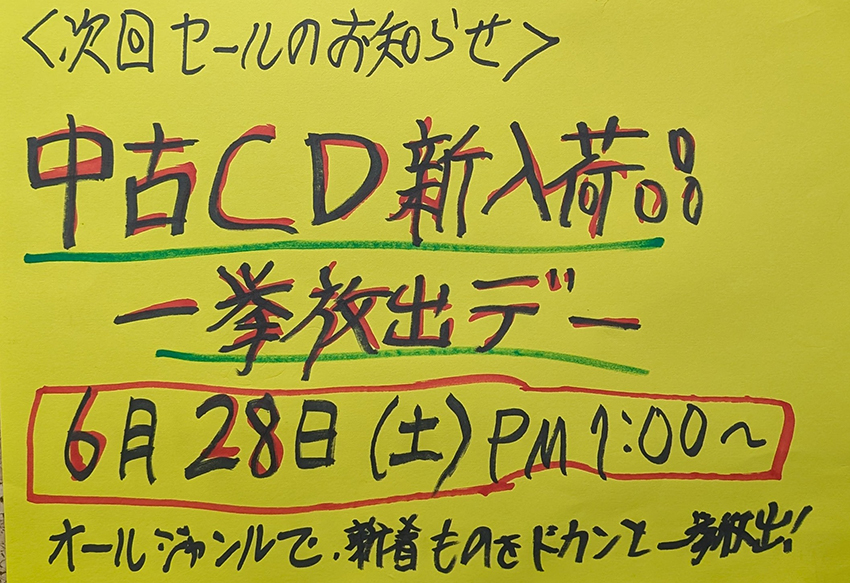 <次回セールのお知らせ>
中古CD新入荷品
一挙放出デー
6月28日(土)PM1:00~
オールジャンルで、新着ものをドカンと一挙放出!